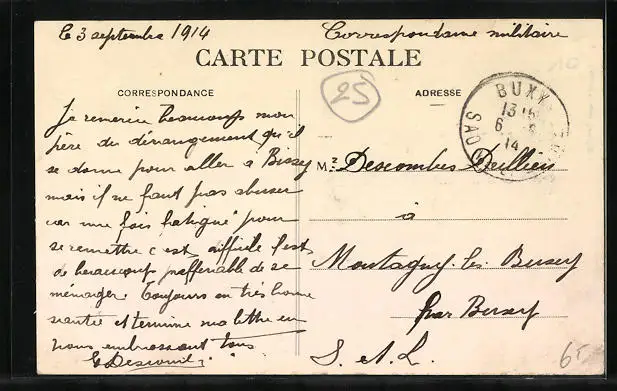 Le 3 septembre 1914
Correspondance militaire
CARTE POSTALE
25
CORRESPONDANCE
ADRESSE
BUXY
13
6
14
SAO
Je remercie beaucoup mon
père du dérangement qu'il
se donne pour aller à Bissey
mais il ne faut pas abuser
car une fois fatigué pour
se remettre c'est difficile c'est
de beaucoup préférable de se
ménager. Toujours en très bonne
santé et termine ma lettre en
vous embrassant tous
M. Descombes
à
Montagny-les-Buxy
par Buxy
S. et L.
6